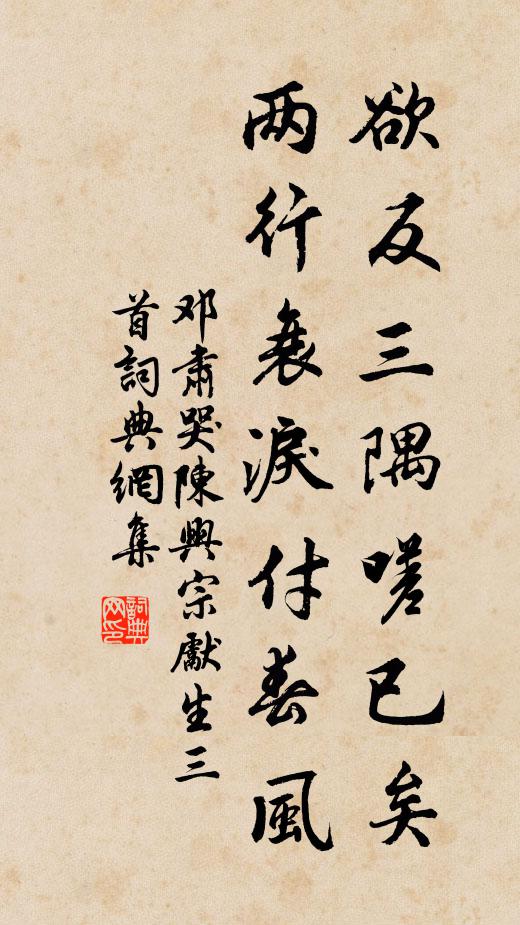 欲反三隅嗟已矣
两行衰淚付春風
邓肅哭陳興宗獻生三
首詞典網集
詞典
网印